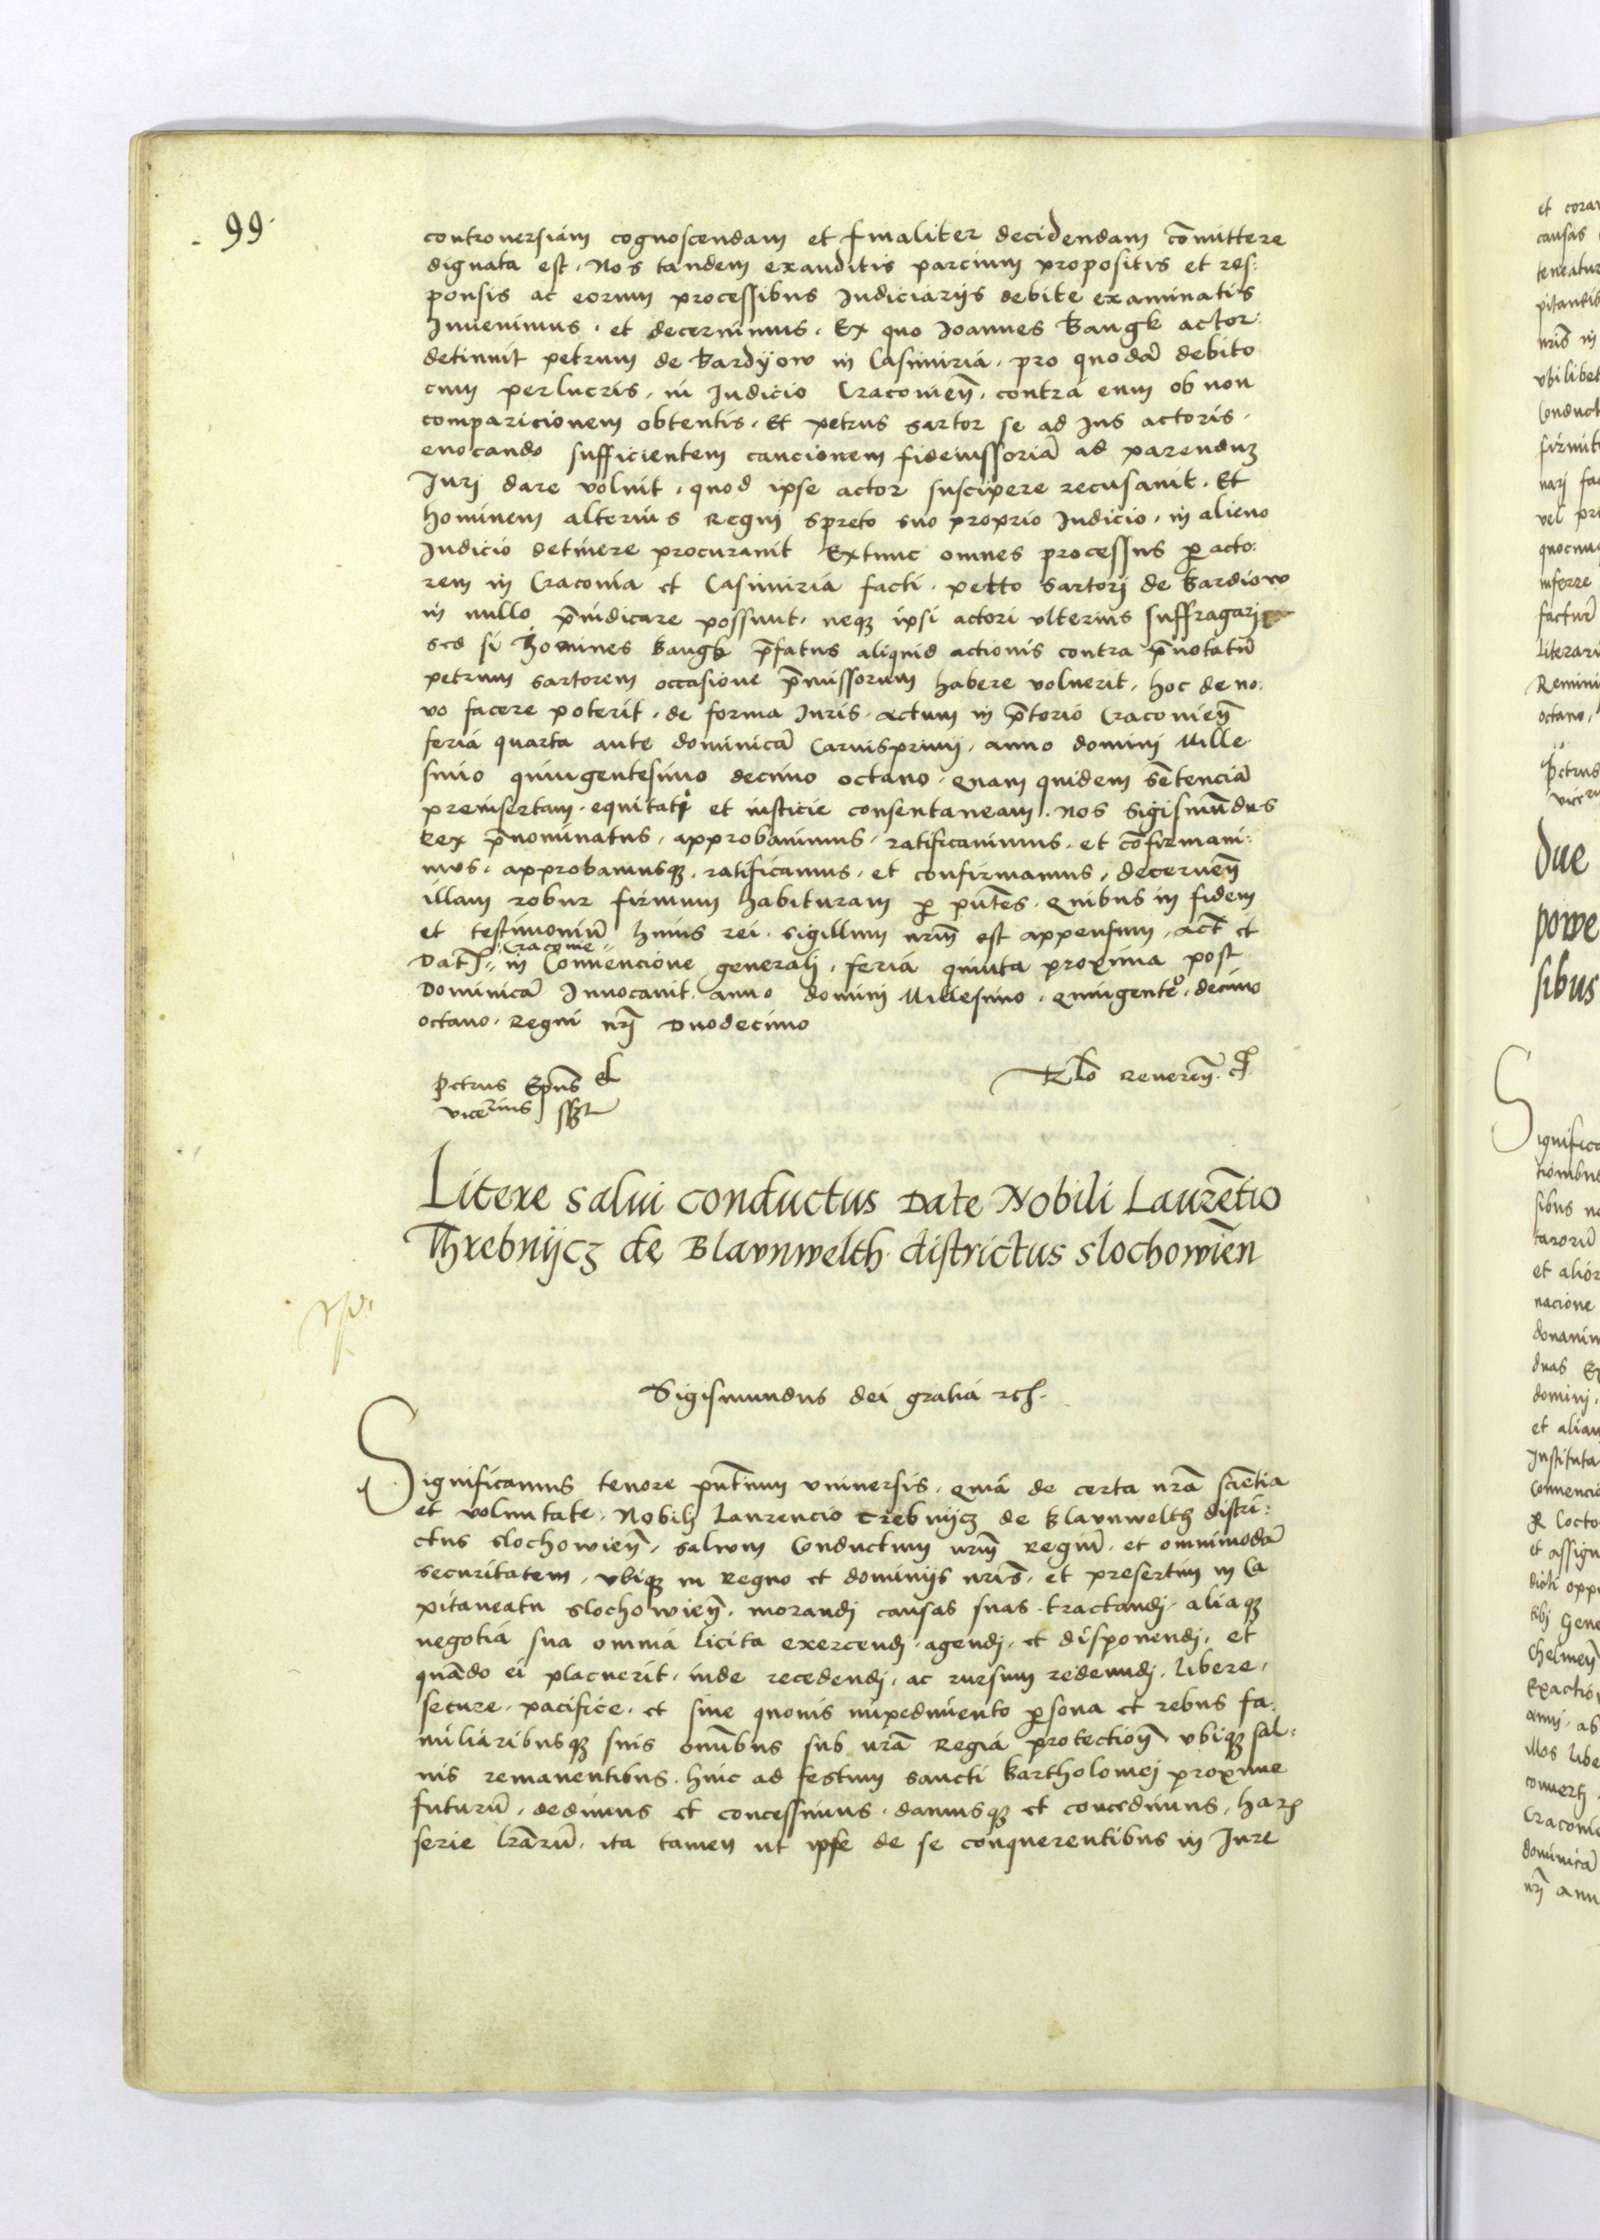 99
controuersiam cognoscendam et finaliter decidendam cōmittere
dignata est. Nos tandem exauditis parcium propositis et res:
ponsis ac eorum processibus Iudiciarijs debite examinatis
Inuenimus. et decernimus. Ex quo Ioannes Bangk actor
detinuit petrum de Bardÿow in Casimiria. pro quodā debito
cum perlucris. in Iudicio Cracovieñ. contra eum ob non
comparicionem obtentis. Et petrus sartor se ad Ius actoris.
euocando sufficientem caucionem fideiussoriā ad parenduȝ
Iurj dare voluit. quod ipse actor suscipere recusauit. Et
hominem alterius Regni spreto suo proprio Iudicio. in alieno
Iudicio detinere procurauit Extunc omnes processus ꝑ acto:
rem in Cracouia et Casimiria facti. petro sartorj de Bardiow
in nullo p̄iudicare possunt. neqȝ ipsi actori vlterius suffragarj
sed si homines Bangk p̄fatus aliquid actionis contra p̄notatū
petrum sartorem occasione p̄missorum habere voluerit. hoc de no:
uo facere poterit. de forma Iuris. Actum in p̄torio Cracovieñ
feria quarta ante dominicā Carnispriuij. anno dominj Mille
simo quingentesimo decimo octauo. Quam quidem sētenciā
preinsertam. equitati et iusticie consentaneam. Nos Sigismūdus
Rex p̄nominatus. approbauimus. ratificauimus. et cōfirmaui:
mus. approbamusqȝ. ratificamus. et confirmamus. decerneñ
illam robur firmum habituram ꝑ pn̄tes. Quibus in fidem
et testimoniū huius rei. sigillum nr̄m est appensum. Act̄ et
Cracovie
Dat̄ in Conuencione generalj. feria quinta proxima post
Dominicā Inuocauit. anno dominj Millesimo. Quingenteº. decimo
octauo. Regni nr̄j Duodecimo
Petrus Ep̄us Et Rl̄o Reuereñ.
vicecrius sszt
Litere salui conductus Date Nobili Laurētio
Threbnijcz de Blavnwelth districtus slochowiēn
Sigismundus dei gratia rc̄.
Significamus tenore pn̄tium vniuersis. quia de certa nr̄a sciētia
et voluntate. Nobilj Laurencio Trebnijcz de Blavnwelth distri:
ctus slochowieñ. saluum Conductum nr̄m Regiū. et omnimodā
securitatem. vbiqȝ in Regno et dominijs nr̄is. et presertim in Ca
pitaneatu slochowieñ. morandj causas suas tractandj. aliaqȝ
negotia sua omnia licita exercendj. agendj. et disponendj. et
quādo ei placuerit. inde recedendj. ac rursum redeundj. libere.
secure. pacifice. et sine quouis impedimento ꝑsona et rebus fa.
miliaribusqȝ suis om̄ibus sub nr̄a Regia protectioñ vbiqȝ sal:
uis remanentibus. hinc ad festum sancti Bartholomej proxime
futurū. dedimus et concessimus. damusqȝ et concedimus. har̨
serie lr̄arū. ita tamen ut ipse de se conquerentibus in Iure